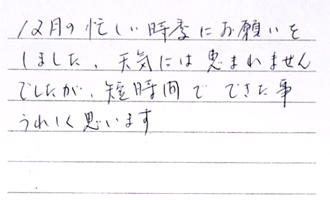 12月の忙しい時季にお願いを
しました、天気には恵まれません
でしたが、短時間で できた事
うれしく思います